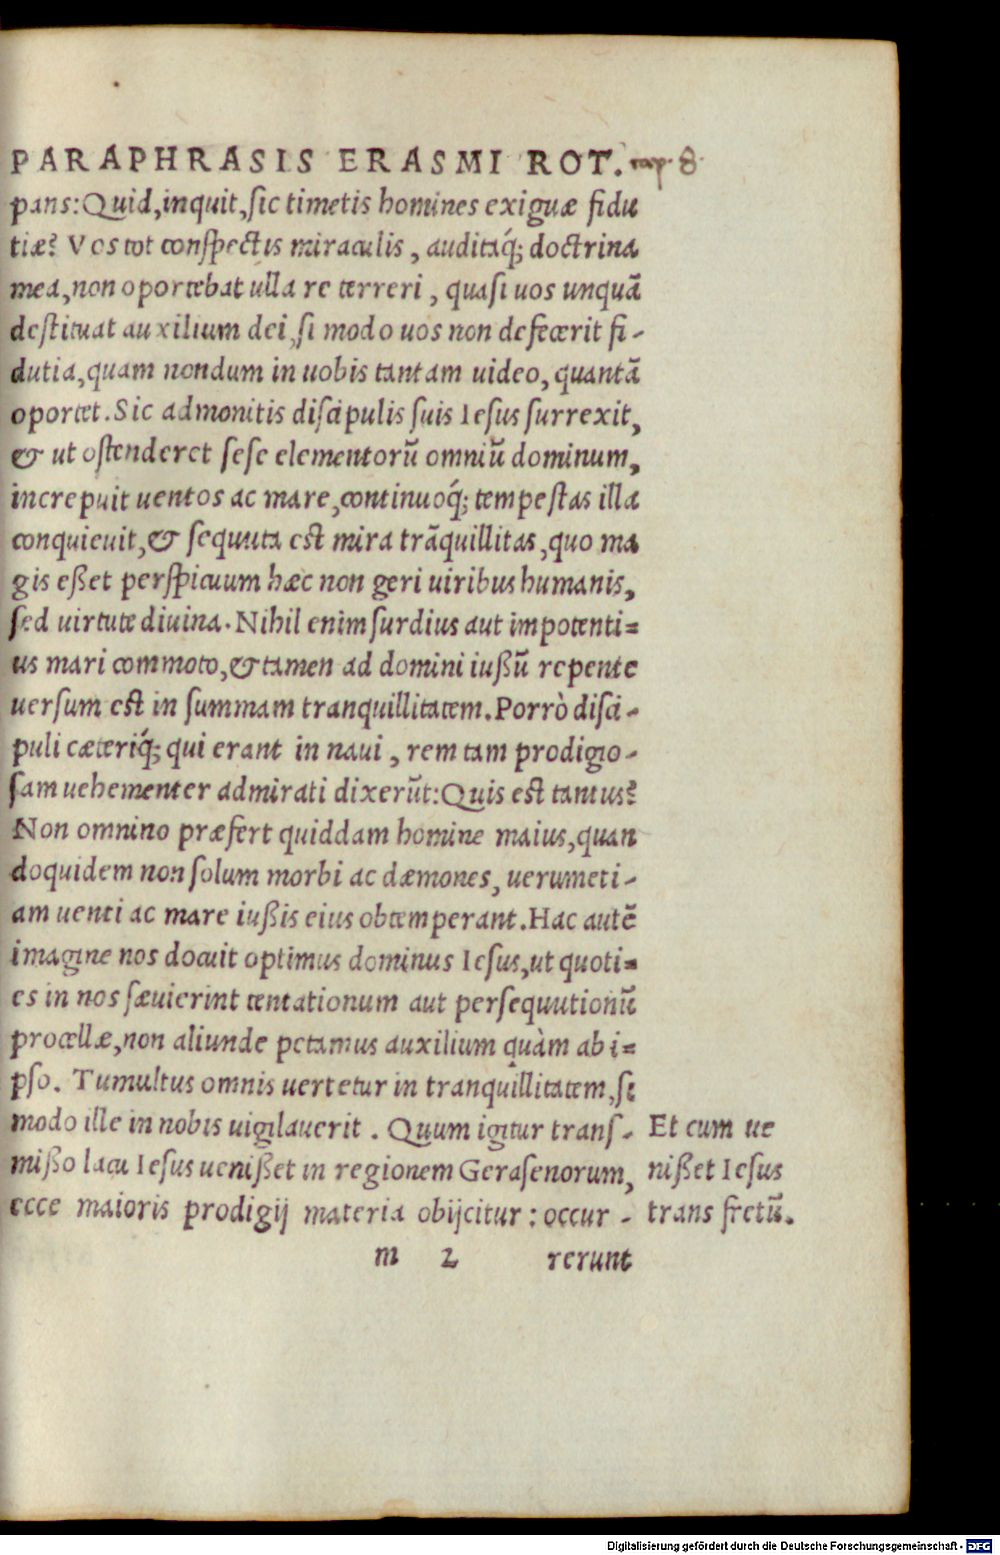 PARAPHRASIS ERASMI ROT. cap. 8.
pans: Quid, inquit, sic timetis homines exiguæ fidu
tiæ? Vos tot conspectis miraculis, auditaq́; doctrina
mea, non oportebat ulla re terreri, quasi uos unquã
destituat auxilium dei, si modo uos non defecerit fi-
dutia, quam nondum in uobis tantam uideo, quantã
oportet. Sic admonitis discipulis suis Iesus surrexit,
& ut ostenderet sese elementorũ omniũ dominum,
increpuit uentos ac mare, continuoq́; tempestas illa
conquieuit, & sequuta est mira trãquillitas, quo ma
gis eßet perspicuum hæc non geri uiribus humanis,
sed uirtute diuina. Nihil enim surdius aut impotenti=
us mari commoto, & tamen ad domini iußũ repente
uersum est in summam tranquillitatem. Porrò disci-
puli cæteriq́; qui erant in naui, rem tam prodigio-
sam uehementer admirati dixerũt: Quis est tantus?
Non omnino præfert quiddam homine maius, quan
doquidem non solum morbi ac dæmones, uerumeti-
am uenti ac mare iußis eius obtemperant. Hac autẽ
imagine nos docuit optimus dominus Iesus, ut quoti=
es in nos sæuierint tentationum aut persequutionũ
procellæ, non aliunde petamus auxilium quàm ab i=
pso. Tumultus omnis uertetur in tranquillitatem, si
modo ille in nobis uigilauerit. Quum igitur trans-
mißo lacu Iesus uenißet in regionem Gerasenorum,
ecce maioris prodigij materia obijcitur: occur-
Et cum ue
nißet Iesus
trans fretũ.
m 2 rerunt
Digitalisierung gefördert durch die Deutsche Forschungsgemeinschaft - DFG